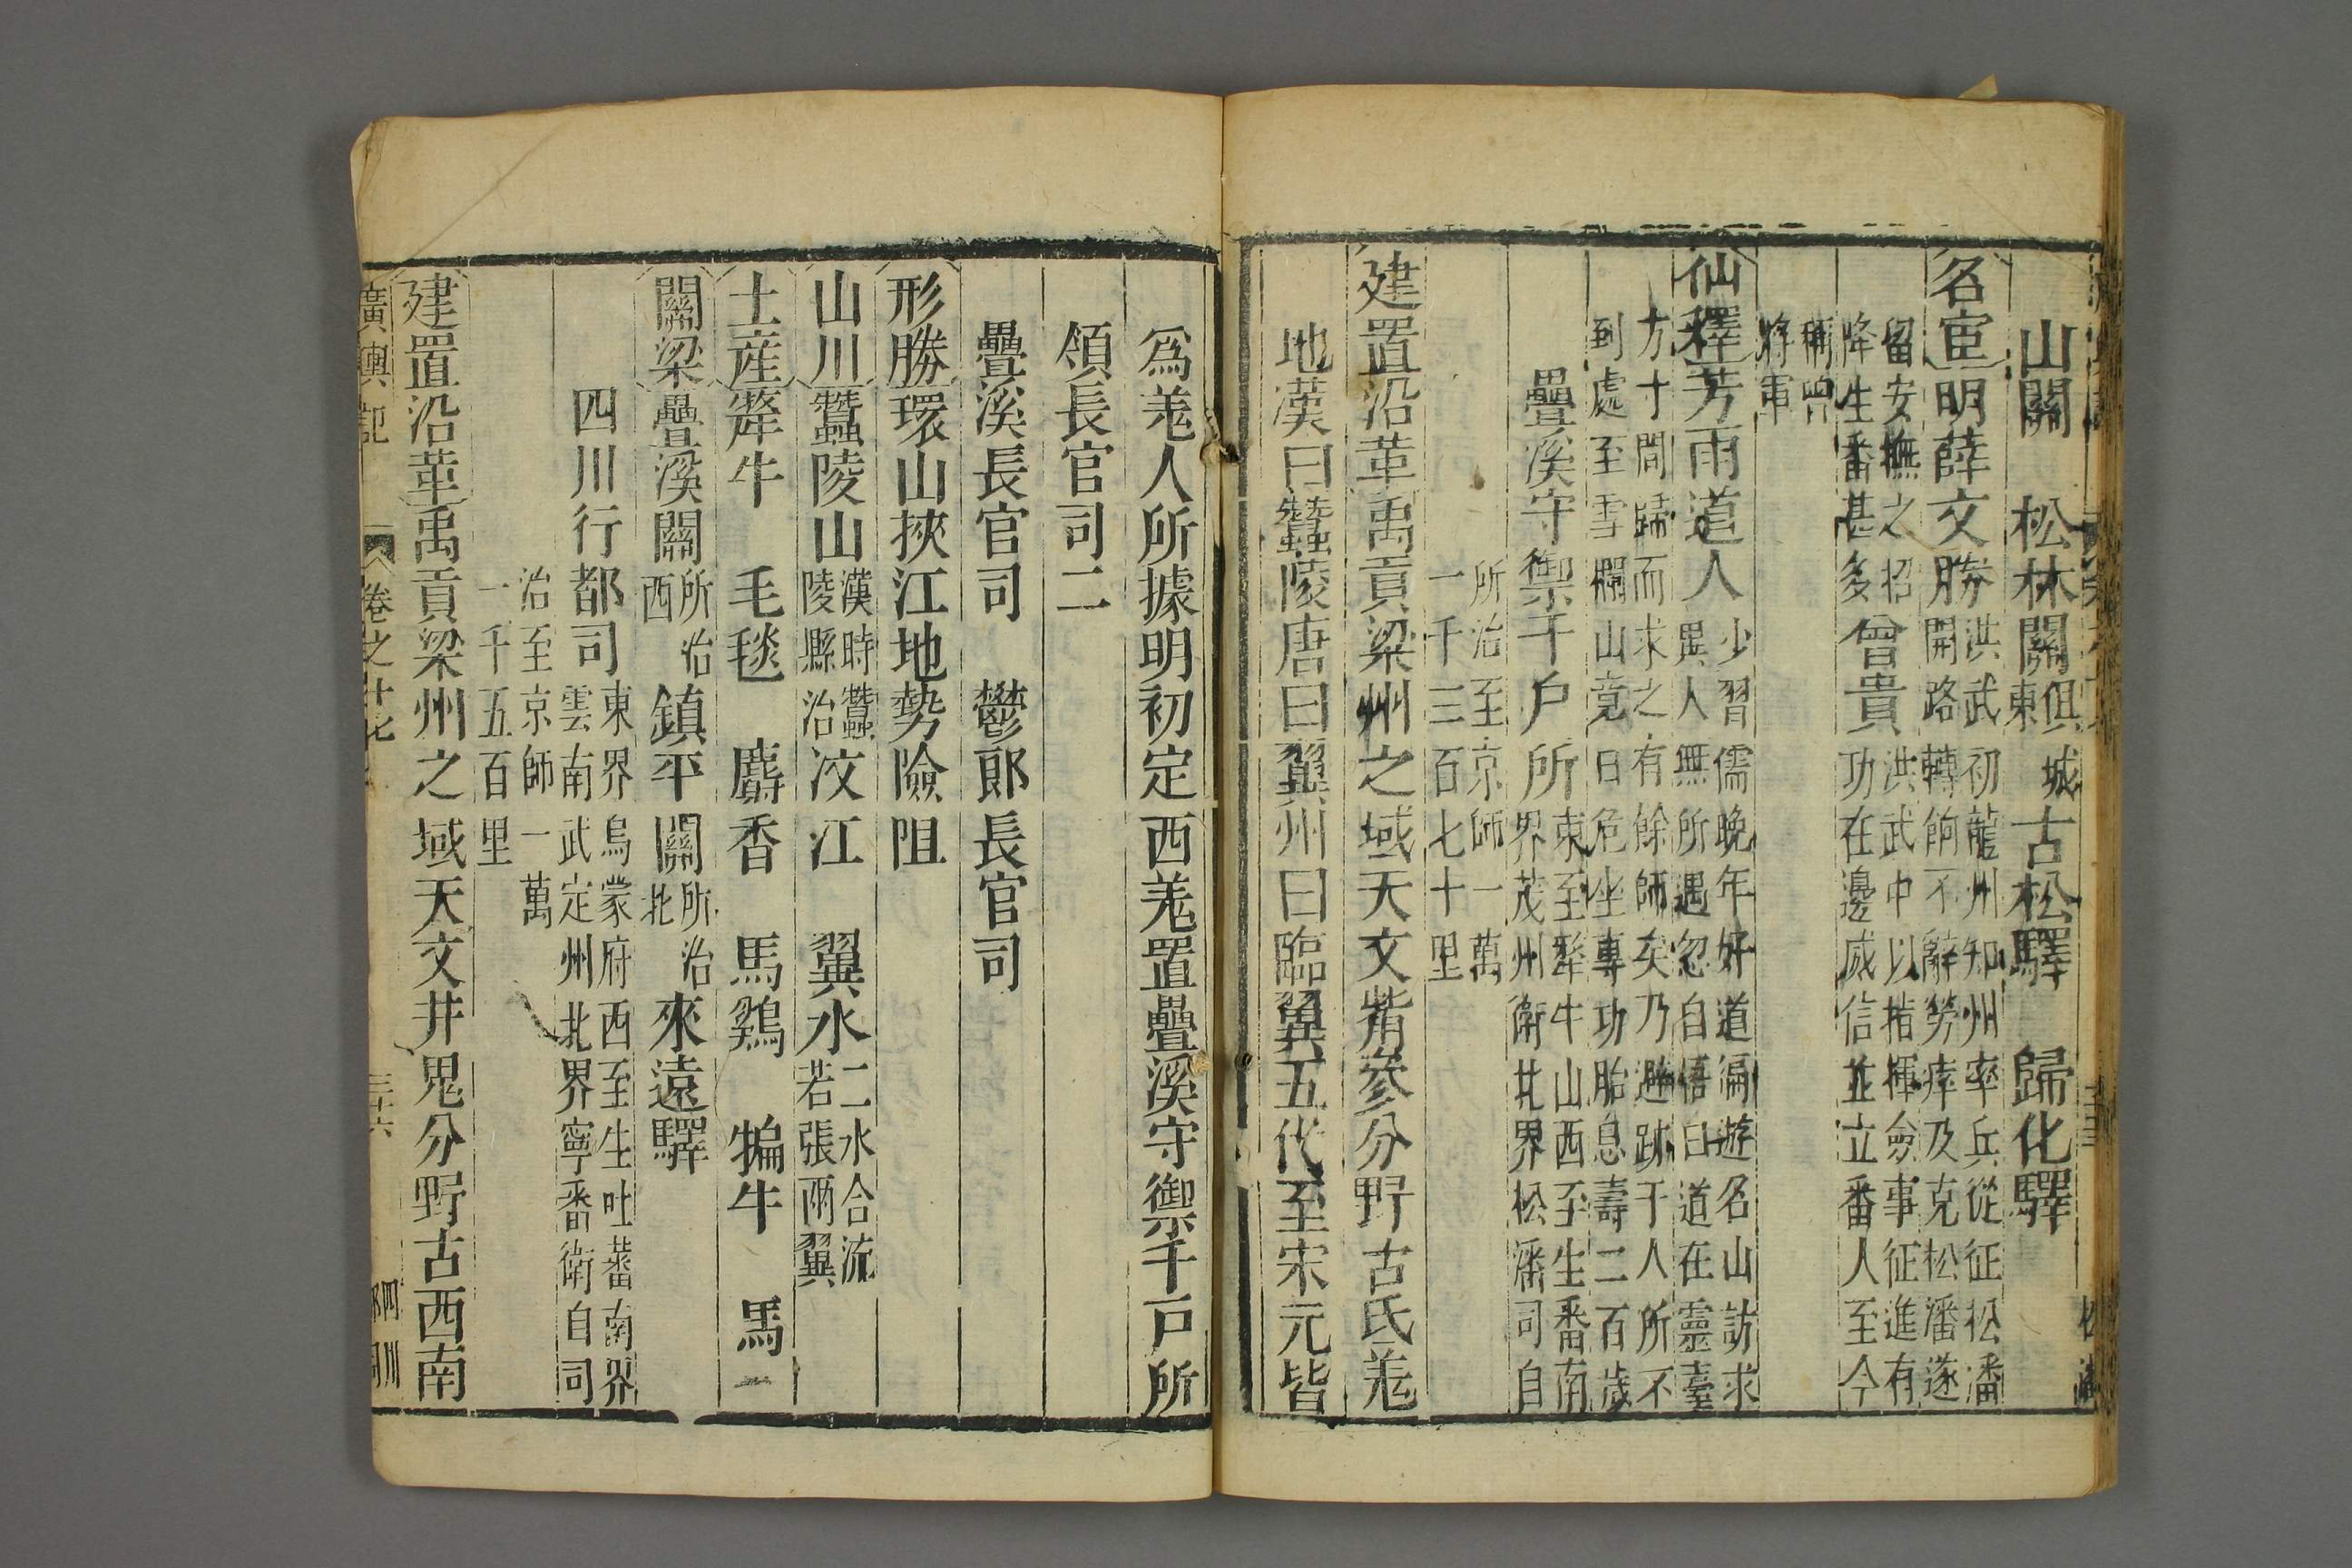 山關　松林關俱城東古松驛　歸化驛
名宦明薛文勝洪武初龍州知州率兵從征松潘
開路轉餉不辭勞瘁及克松潘遂
留安撫之招
降生番甚多曾貴洪武中以指揮僉事征進有
功在邊威信並立番人至今
稱曾
將軍
仙釋芳雨道人少習儒晚年好道徧遊名山訪求
異人無所遇忽自悟曰道在靈臺
方寸間歸而求之有餘師矣乃遯跡于人所不
到處至雪欄山竟日危坐專功胎息壽二百歲
疊溪守禦千戶所東至犛牛山西至生番南
界茂州衛北界松潘司自
所治至京師一萬
一千三百七十里
建置沿革禹貢梁州之域天文觜參分野古氐羌
地漢曰蠶陵唐曰翼州曰臨翼五代至宋元皆
爲羌人所據明初定西羌置疊溪守禦千戸所
領長官司二
疊溪長官司　鬱郎長官司
形勝環山挾江地勢險阻
山川蠶陵山漢時蠶陵縣治汶江　翼水二水合流若張兩翼
土産犛牛　毛毯　麝香　馬鷄　犏牛　馬
關梁疊溪關所治西鎮平關所治北來遠驛
四川行都司東界烏蒙府西至生吐蕃南界
雲南武定州北界寧番衛自司
治至京師一萬
一千五百里
建置沿革禹貢梁州之域天文井鬼分野古西南
廣輿記　卷之十七　三十六　四川